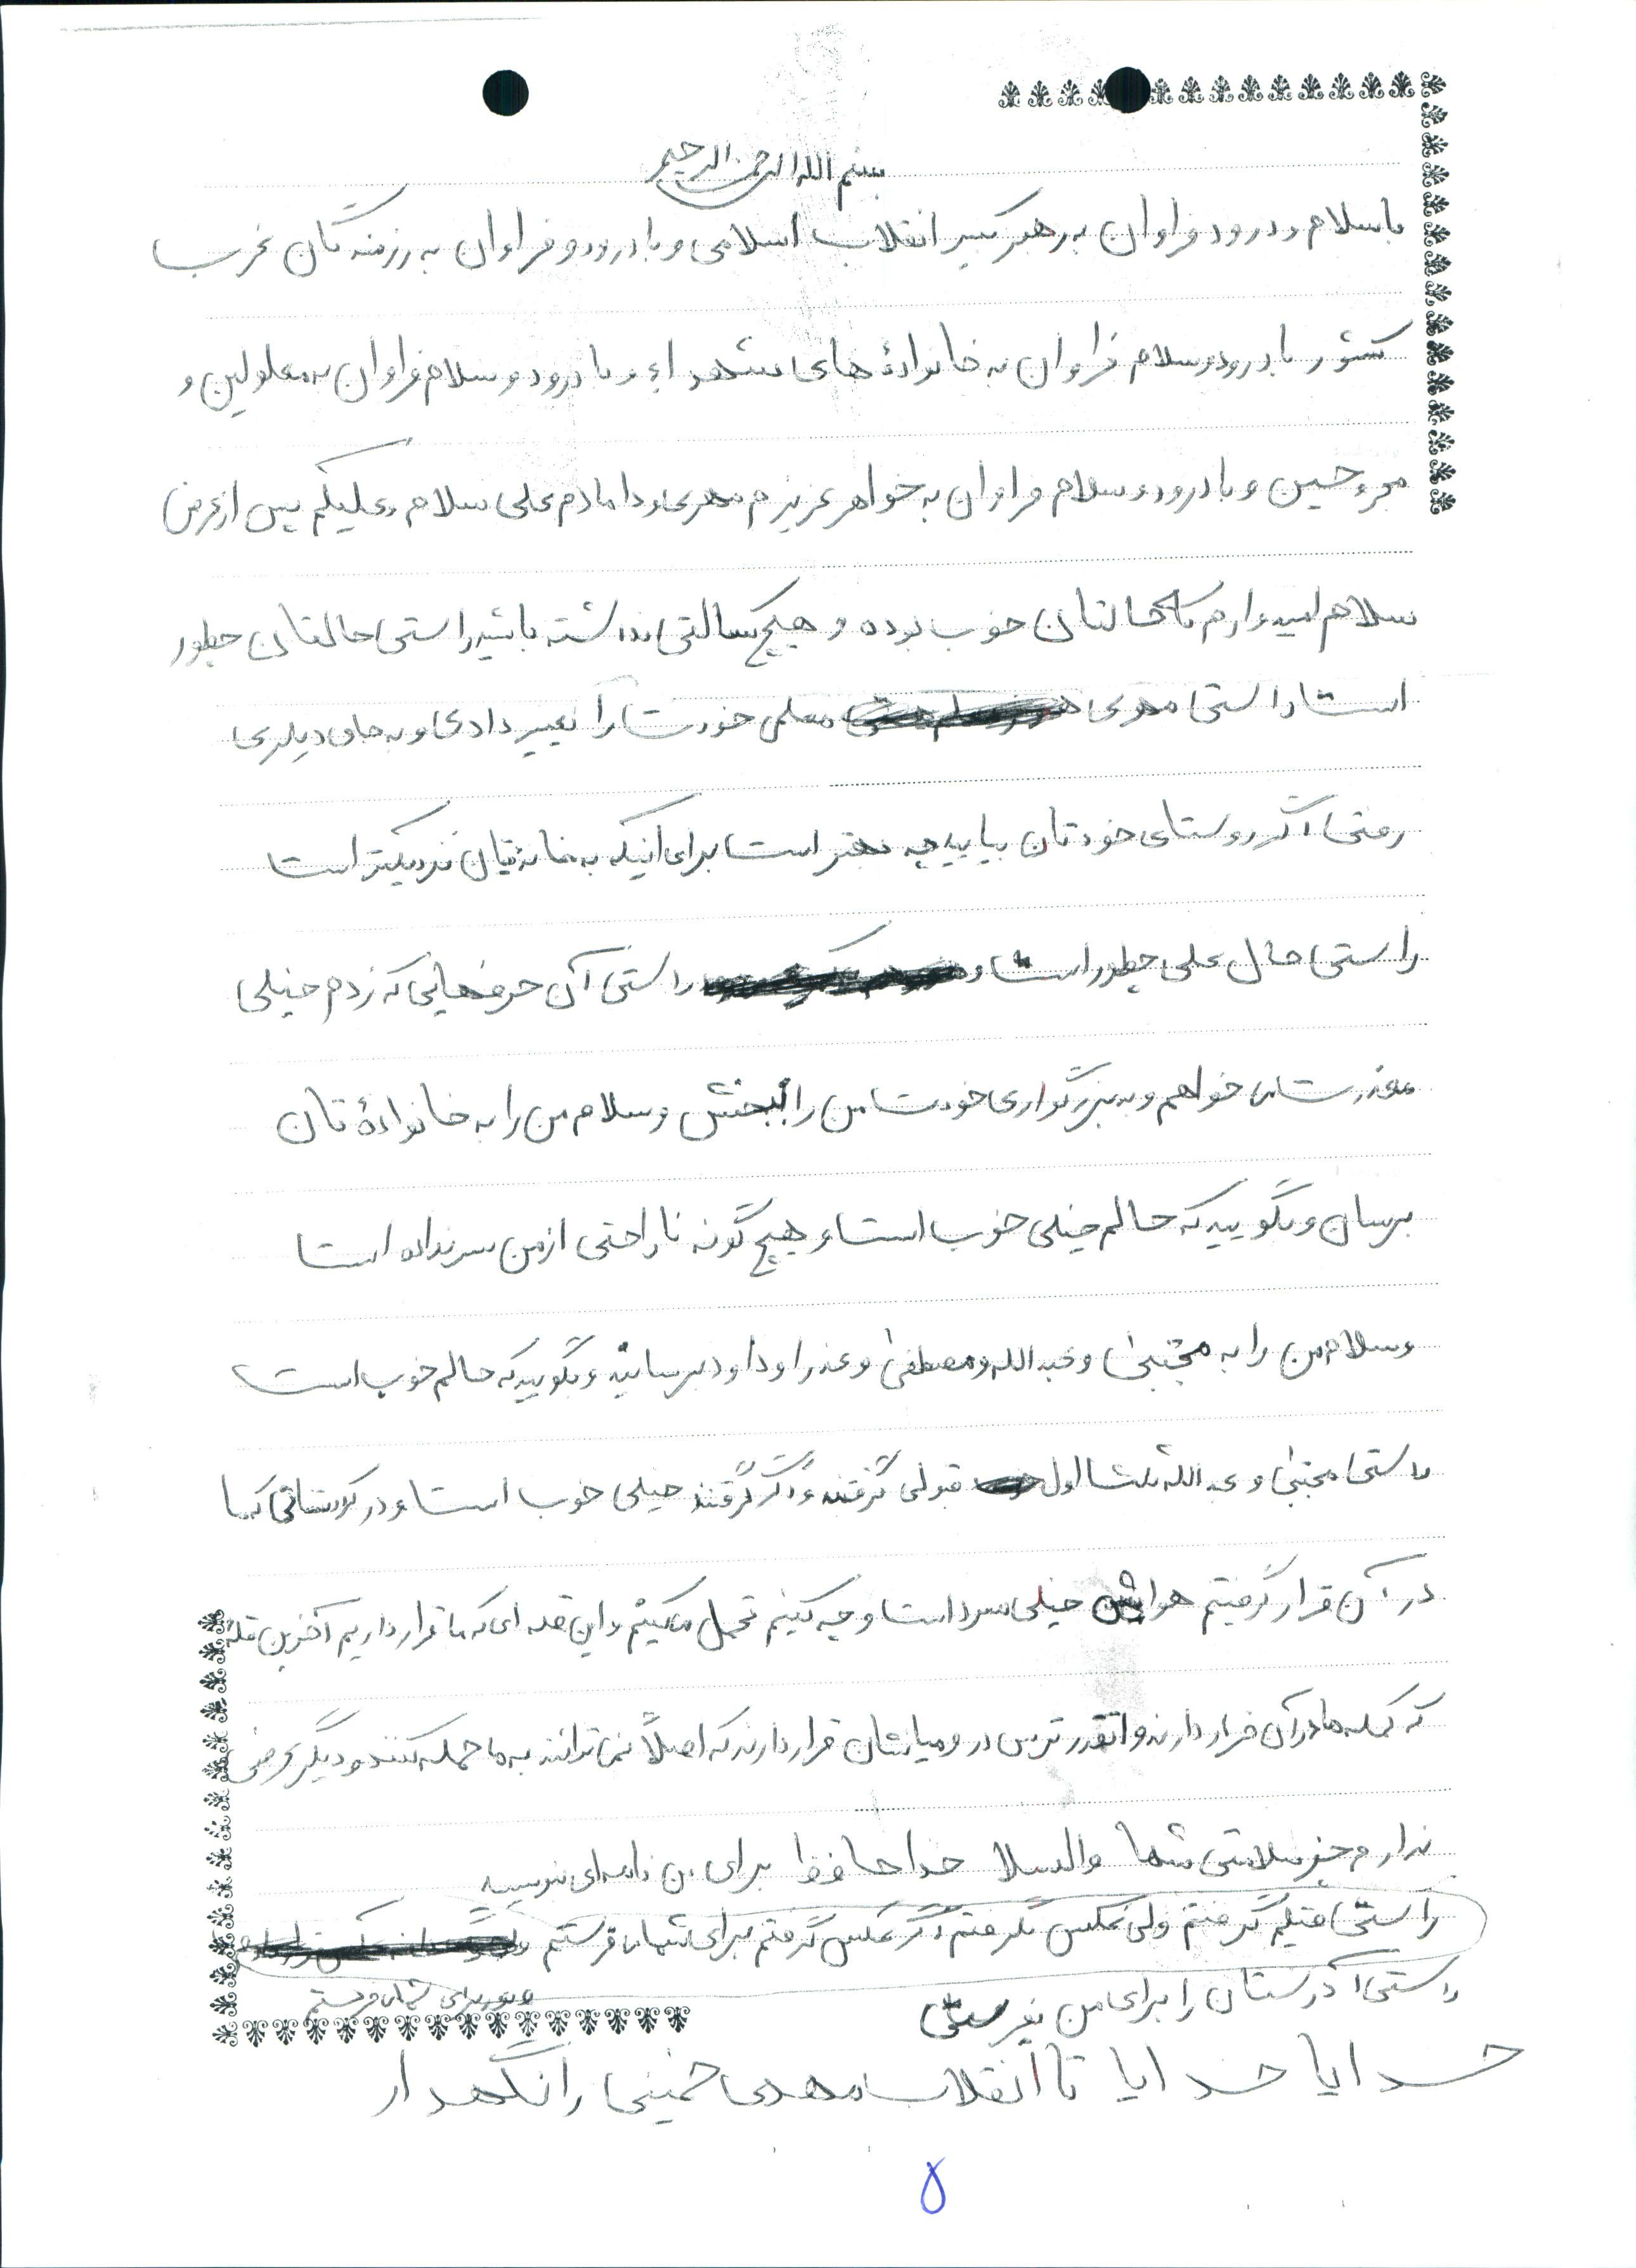 بسم الله الرحمن الرحیم
با سلام و درود فراوان به رهبر کبیر انقلاب اسلامی و با درود و فراوان به رزمندگان غرب
کشور با درود و سلام فراوان به خانوادهٔ های شهداء و با درود و سلام فراوان به معلولین و
مجروحین و با درود و سلام فراوان به خواهر عزیزم مهری و دامادم علی سلام و علیکم پس از عرض
سلام امیدوارم که حالتان خوب بوده و هیچ کسالتی نداشته باشید راستی حالتان چطور
است راستی مهری معلمی خودت را تغییر دادی و به جای دیگری
رفتی اگر روستای خودتان بیایید چه بهتر است برای اینکه به خانه تان نزدیکتر است
راستی حال علی چطور است و راستی آن حرفهایی که زدم خیلی
معذرت می خواهم و به بزرگواری خودت من را ببخش و سلام من را به خانوادهٔ تان
برسان و بگویید که حالم خیلی خوب است و هیچ گونه ناراحتی از من سر نداده است
و سلام من را به مجتبی و عبدالله و مصطفی و عذرا و داود برسانید و بگویید که حالم خوب است
راستی مجتبی و عبدالله ثلث اول قبولی گرفتند و اگر گرفتند خیلی خوب است و در کوهستانی که ما
در آن قرار گرفتیم هوایش خیلی سرد است و چه کنیم تحمل می کنیم و این قله ای که ما قرار داریم آخرین قله
که کمله ها در آن قرار دارند و انقدر ترس در و میانشان قرار دارند که اصلاً نمی توانند به ما حمله کنند و دیگر عرضی
ندارم جز سلامتی شما والسلا خداحافظ برای من نامه ای بنویسید
راستی فیلم گرفتم ولی عکس نگرفتم اگر عکس گرفتم برای شما می فرستم
برای شما می فرستم
راستی آدرستان را برای من بفرستی
خدایا خدایا تا انقلاب مهدی خمینی را نگهدار
۵